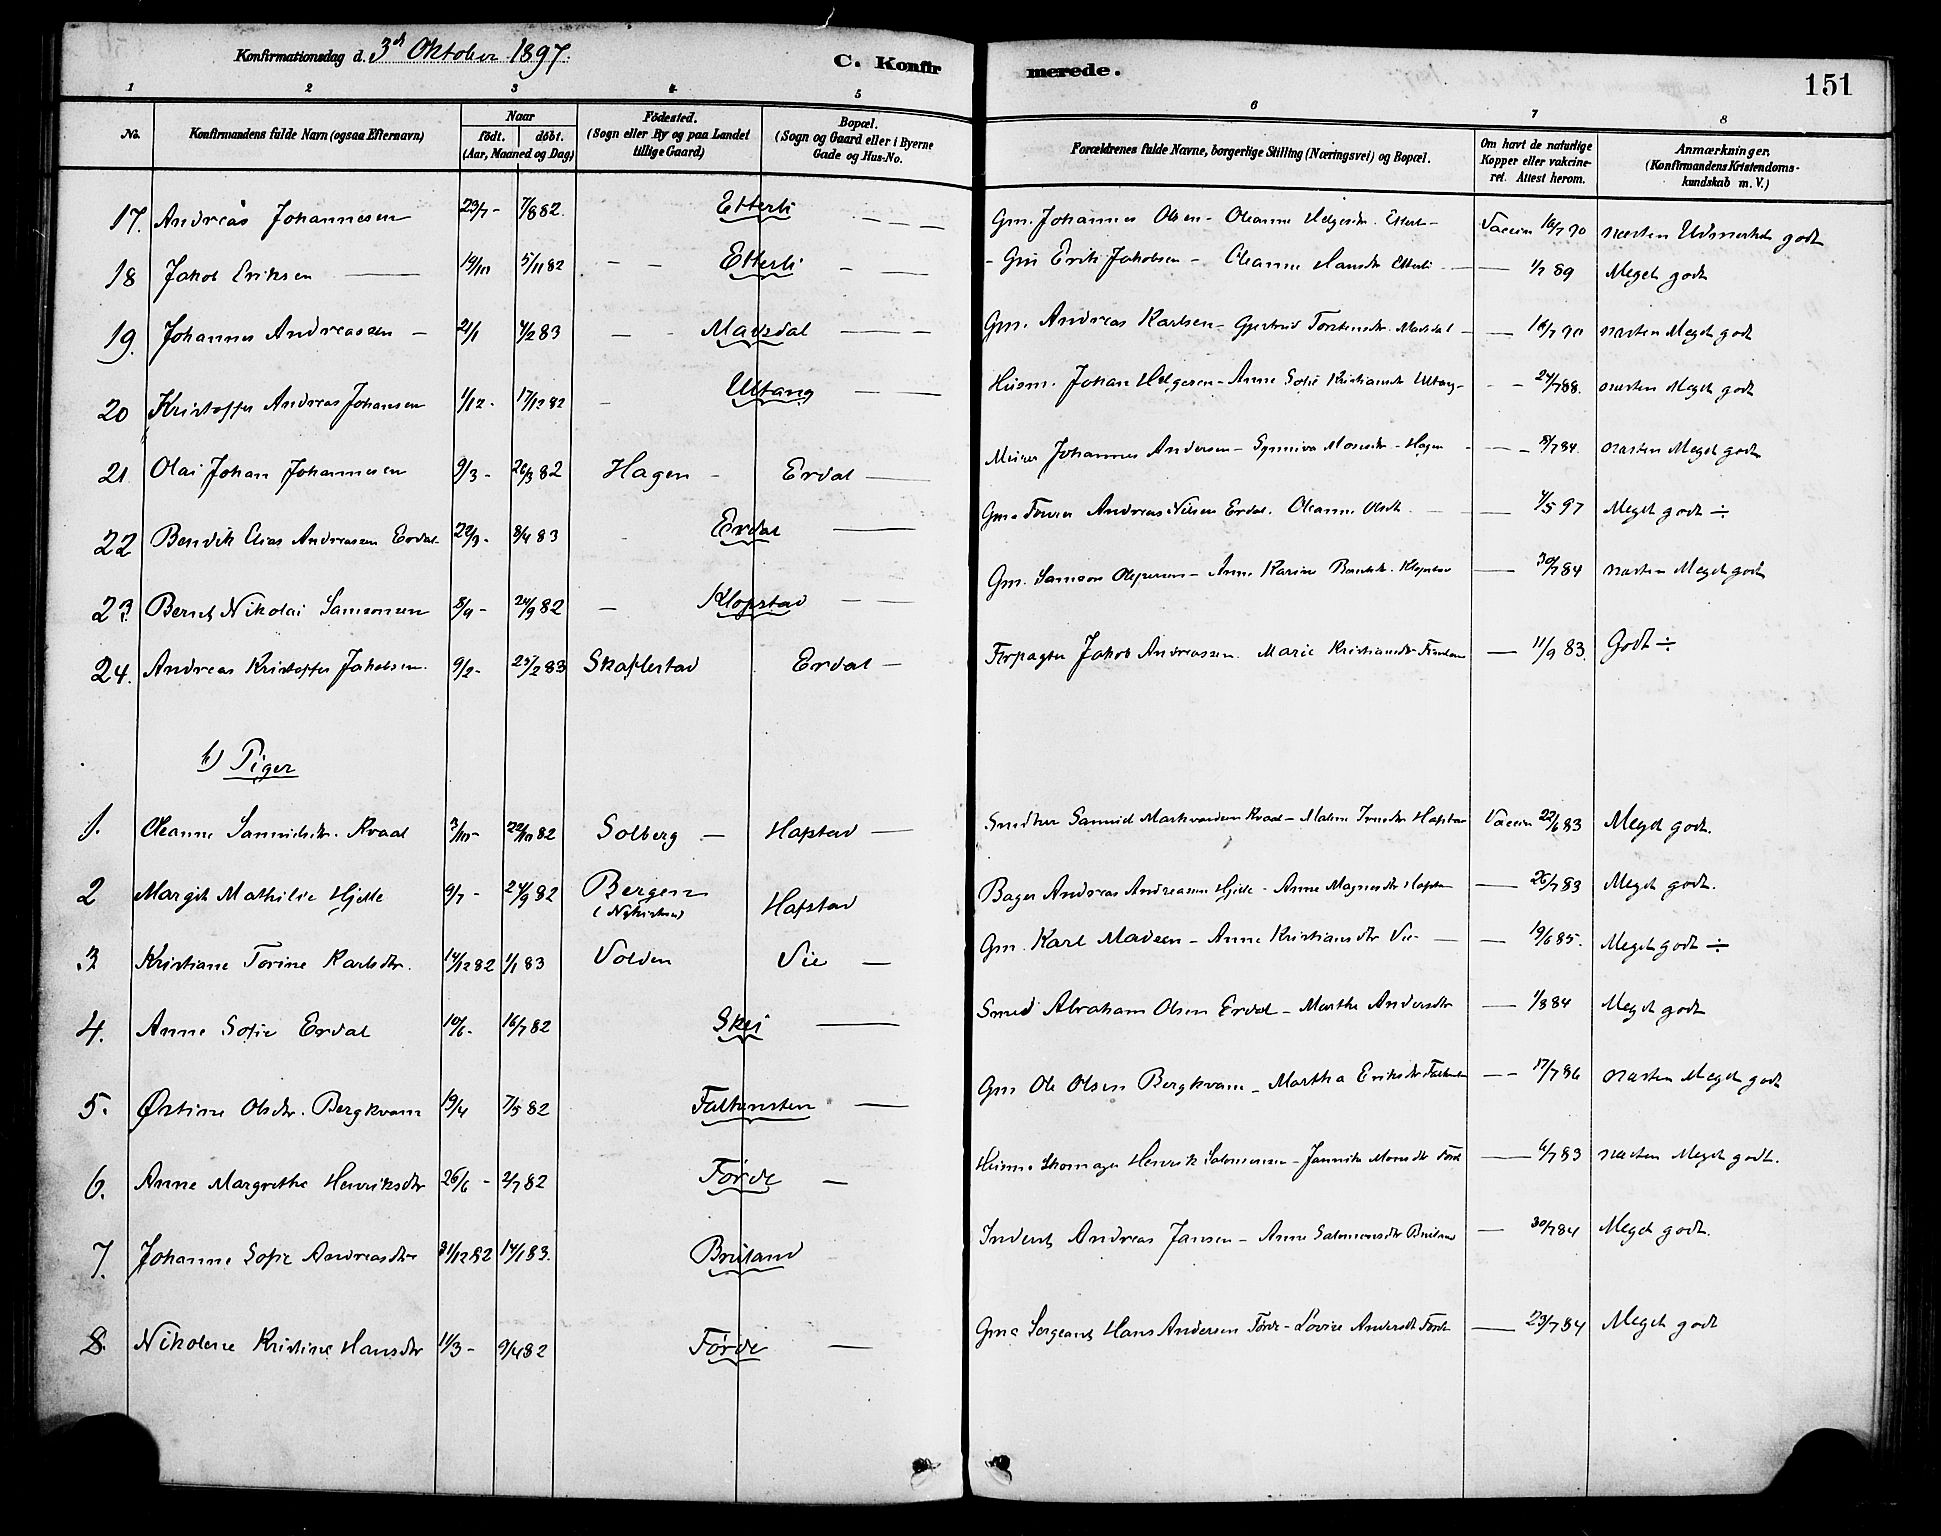 Konfirmationsdag d. 3d Oktober 1897.
C. Konfirmerede.
151
1 2 3 4 5 6 7 8
No. Konfirmandens fulde Navn (ogsaa Efternavn) Naar födt. döbt. (Aar, Maaned og Dag) Födested. (Sogn eller By og paa Landet tillige Gaard) Bopæl. (Sogn og Gaard eller i Byerne Gade og Hus-No. Forældrenes fulde Navne, borgerlige Stilling (Næringsvei) og Bopæl. Om havt de naturlige Kopper eller vakcineret. Attest herom. Anmærkninger. (Konfirmandens Kristendomskundskab m. V.)
17. Andreas Johannesen 23/7 - 7/8 82. Etterli — — Gm. Johannes Olsen - Oleanne Helgesdtr. Etterli - Vaccin 16/7 90 næsten Udmerket godt
18 Jakob Eriksen — 19/10 5/11 82 - - Etterli - — - Gm Erik Jakobsen - Oleanne Hansdtr Etterli — 1/7 89 Meget godt
19. Johannes Andreassen - 21/1 4/2 83 - - Mavsdal — - Gm. Andreas Karlsen - Gjertrud Torstensdtr. Mavsdal - — 16/7 90 næsten Meget godt
20 Kristoffer Andreas Johansen 1/12 - 17/12 82 - Ultang — — Husm. Johan Helgesen - Anne Sofie Kristiansdtr Ultang - - - 24/7 88. næsten Meget godt
21 Olai Johan Johannesen 9/3 - 26/3 82 Hagen - Erdal — Murer Johannes Andersen - Synniva Mosesdtr - Hagen - — 8/7 84. næsten Meget godt
22 Bendik Elias Andreassen Erdal - 20/3 - 8/4 83 - Erdal — Andreas Nilsen Erdal. Oleanne Olsdtr — 4/5 97 Meget godt ÷
23 Bernt Nikolai Samsonsen 8/9 - 24/9 82 - Klopstad — Gm. Samson - Anne Karine Klopstad — 30/7 84 næsten Meget godt
24. Andreas Kristoffer Jakobsen. 9/2 - 25/2 83 Skaflestad Erdal - Forpagter Jakob Andreassen. Marie Kristiansdtr — 11/9 83. Godt ÷
b) Piger
1. Oleanne Samuelsdtr. Kvaal 3/10 - 22/10 82 Solberg — Hafstad — Samuel Kvaal - Hafstad Vaccin 22/6 83 Meget godt.
2 Margit Mathilie Hjelle 9/7 - 24/9 82 Bergen (Nykirken) Hafstad Bager Andreas Andreassen Hjelle - Anne Magnesdtr Hafstad — 26/7 83 Meget godt.
3 Kristiane Torine Karlsdtr. 14/12 82 1/1 83 Volden Vie — Gm. Karl Madsen - Anne Kristiansdtr Vie - — 19/6 85. Meget godt ÷
4. Anne Sofie Erdal 10/6 - 16/7 82 Skei — Smed Abraham Olsen Erdal - Marthe Andersdtr — 1/8 84 Meget godt
5. Østine Olsdtr. Bergkvam 19/4 7/5 82 Falkensten — Gm Ole Olsen Bergkvam - Martha Eriksdtr Falkensten - - 17/7 86 næsten Meget godt
6. Anne Margrethe Henriksdtr 26/6 - 2/7 82 Førde — Skomager Henrik Salomonsen - Jannike Monsdtr Førde — 6/7 83 næsten Meget godt.
7. Johanne Sofie Andreasdtr 31/12 82 14/1 83. Bruland - Inderst Andreas Jansen - Anne Salomonsdtr Bruland — 30/7 84 Meget godt.
8. Nikolene Kristine Hansdtr 11/3 - 9/4 82 Førde — Sergeant Hans Andersen Førde - Lovise Andersdtr Førde — 23/7 84 Meget godt